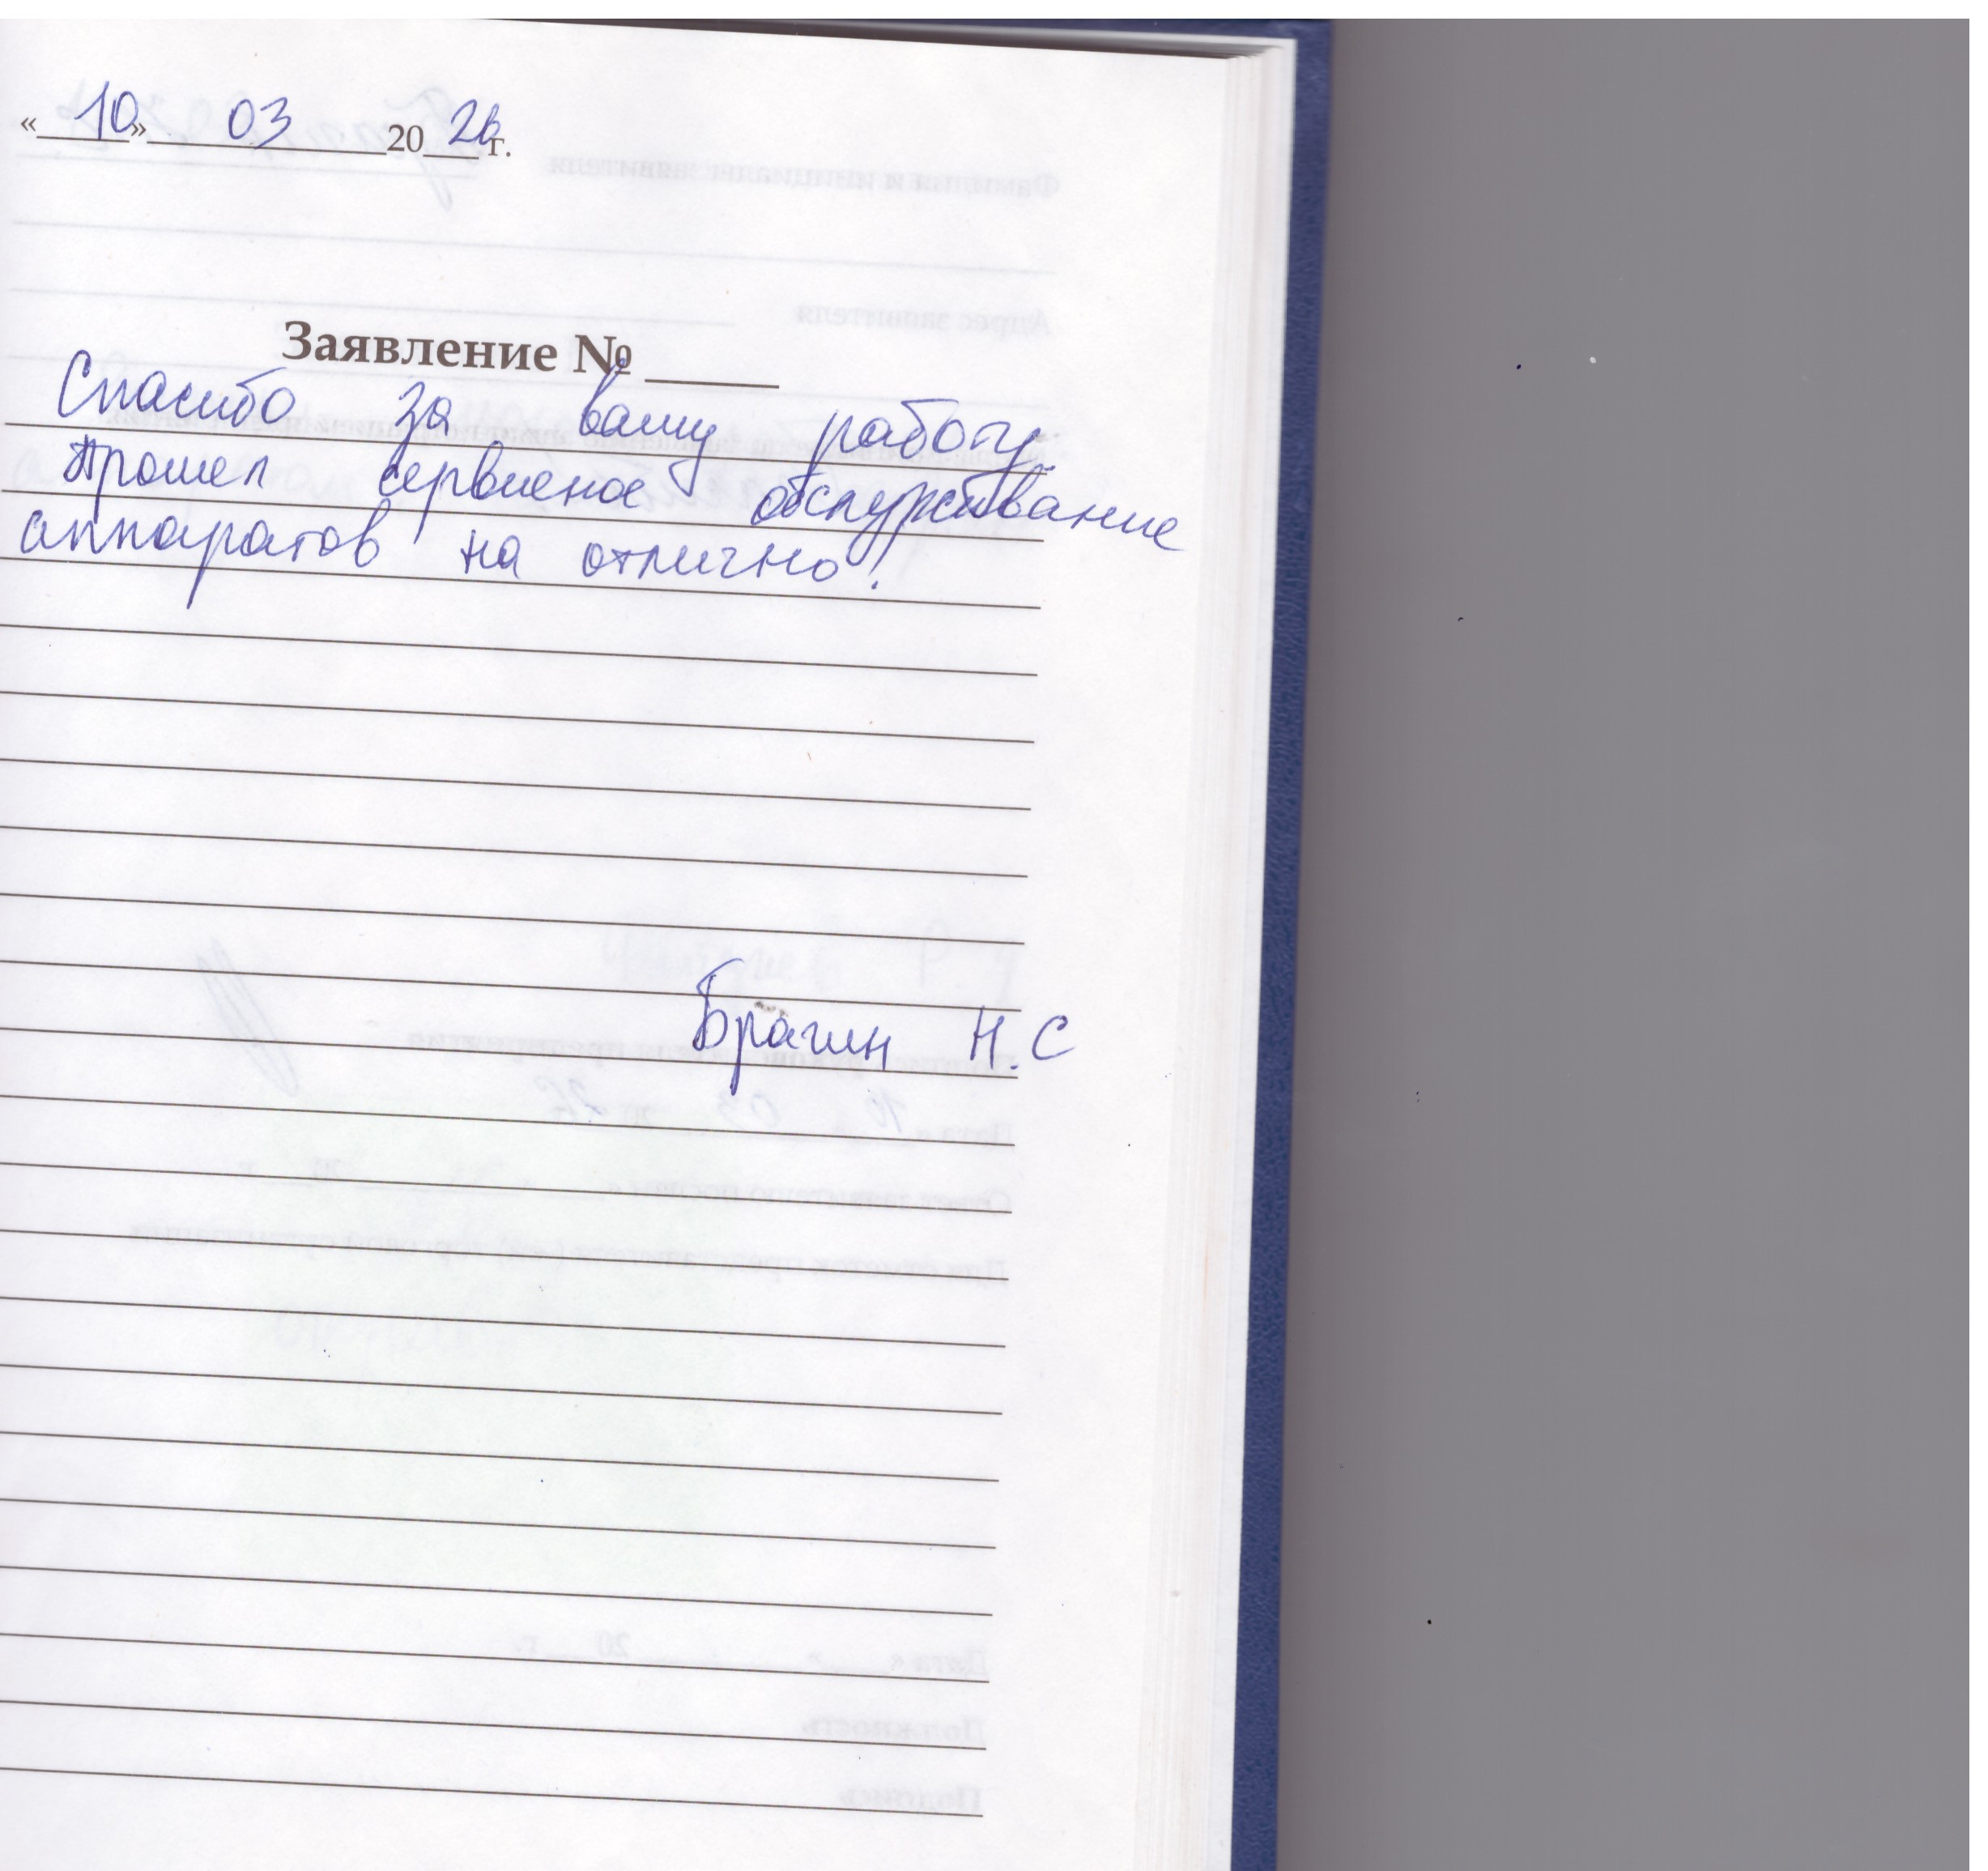 «10» 03 2026 г.
Заявление № ____
Спасибо за вашу работу.
Прошел сервисное обслуживание
аппаратов на отлично!
Брагин Н.С